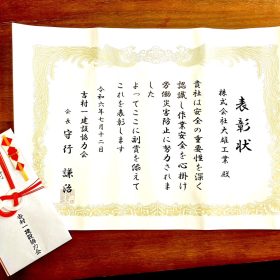 表彰状
株式会社大雄工業 殿
貴社は安全の重要性を深く
認識し作業安全を心掛け
労働災害防止に努力されま
した
よってここに副賞を添えて
これを表彰します
令和六年七月十二日
吉村一建設協力会
会長 守行 謙治
吉村一建設協力会